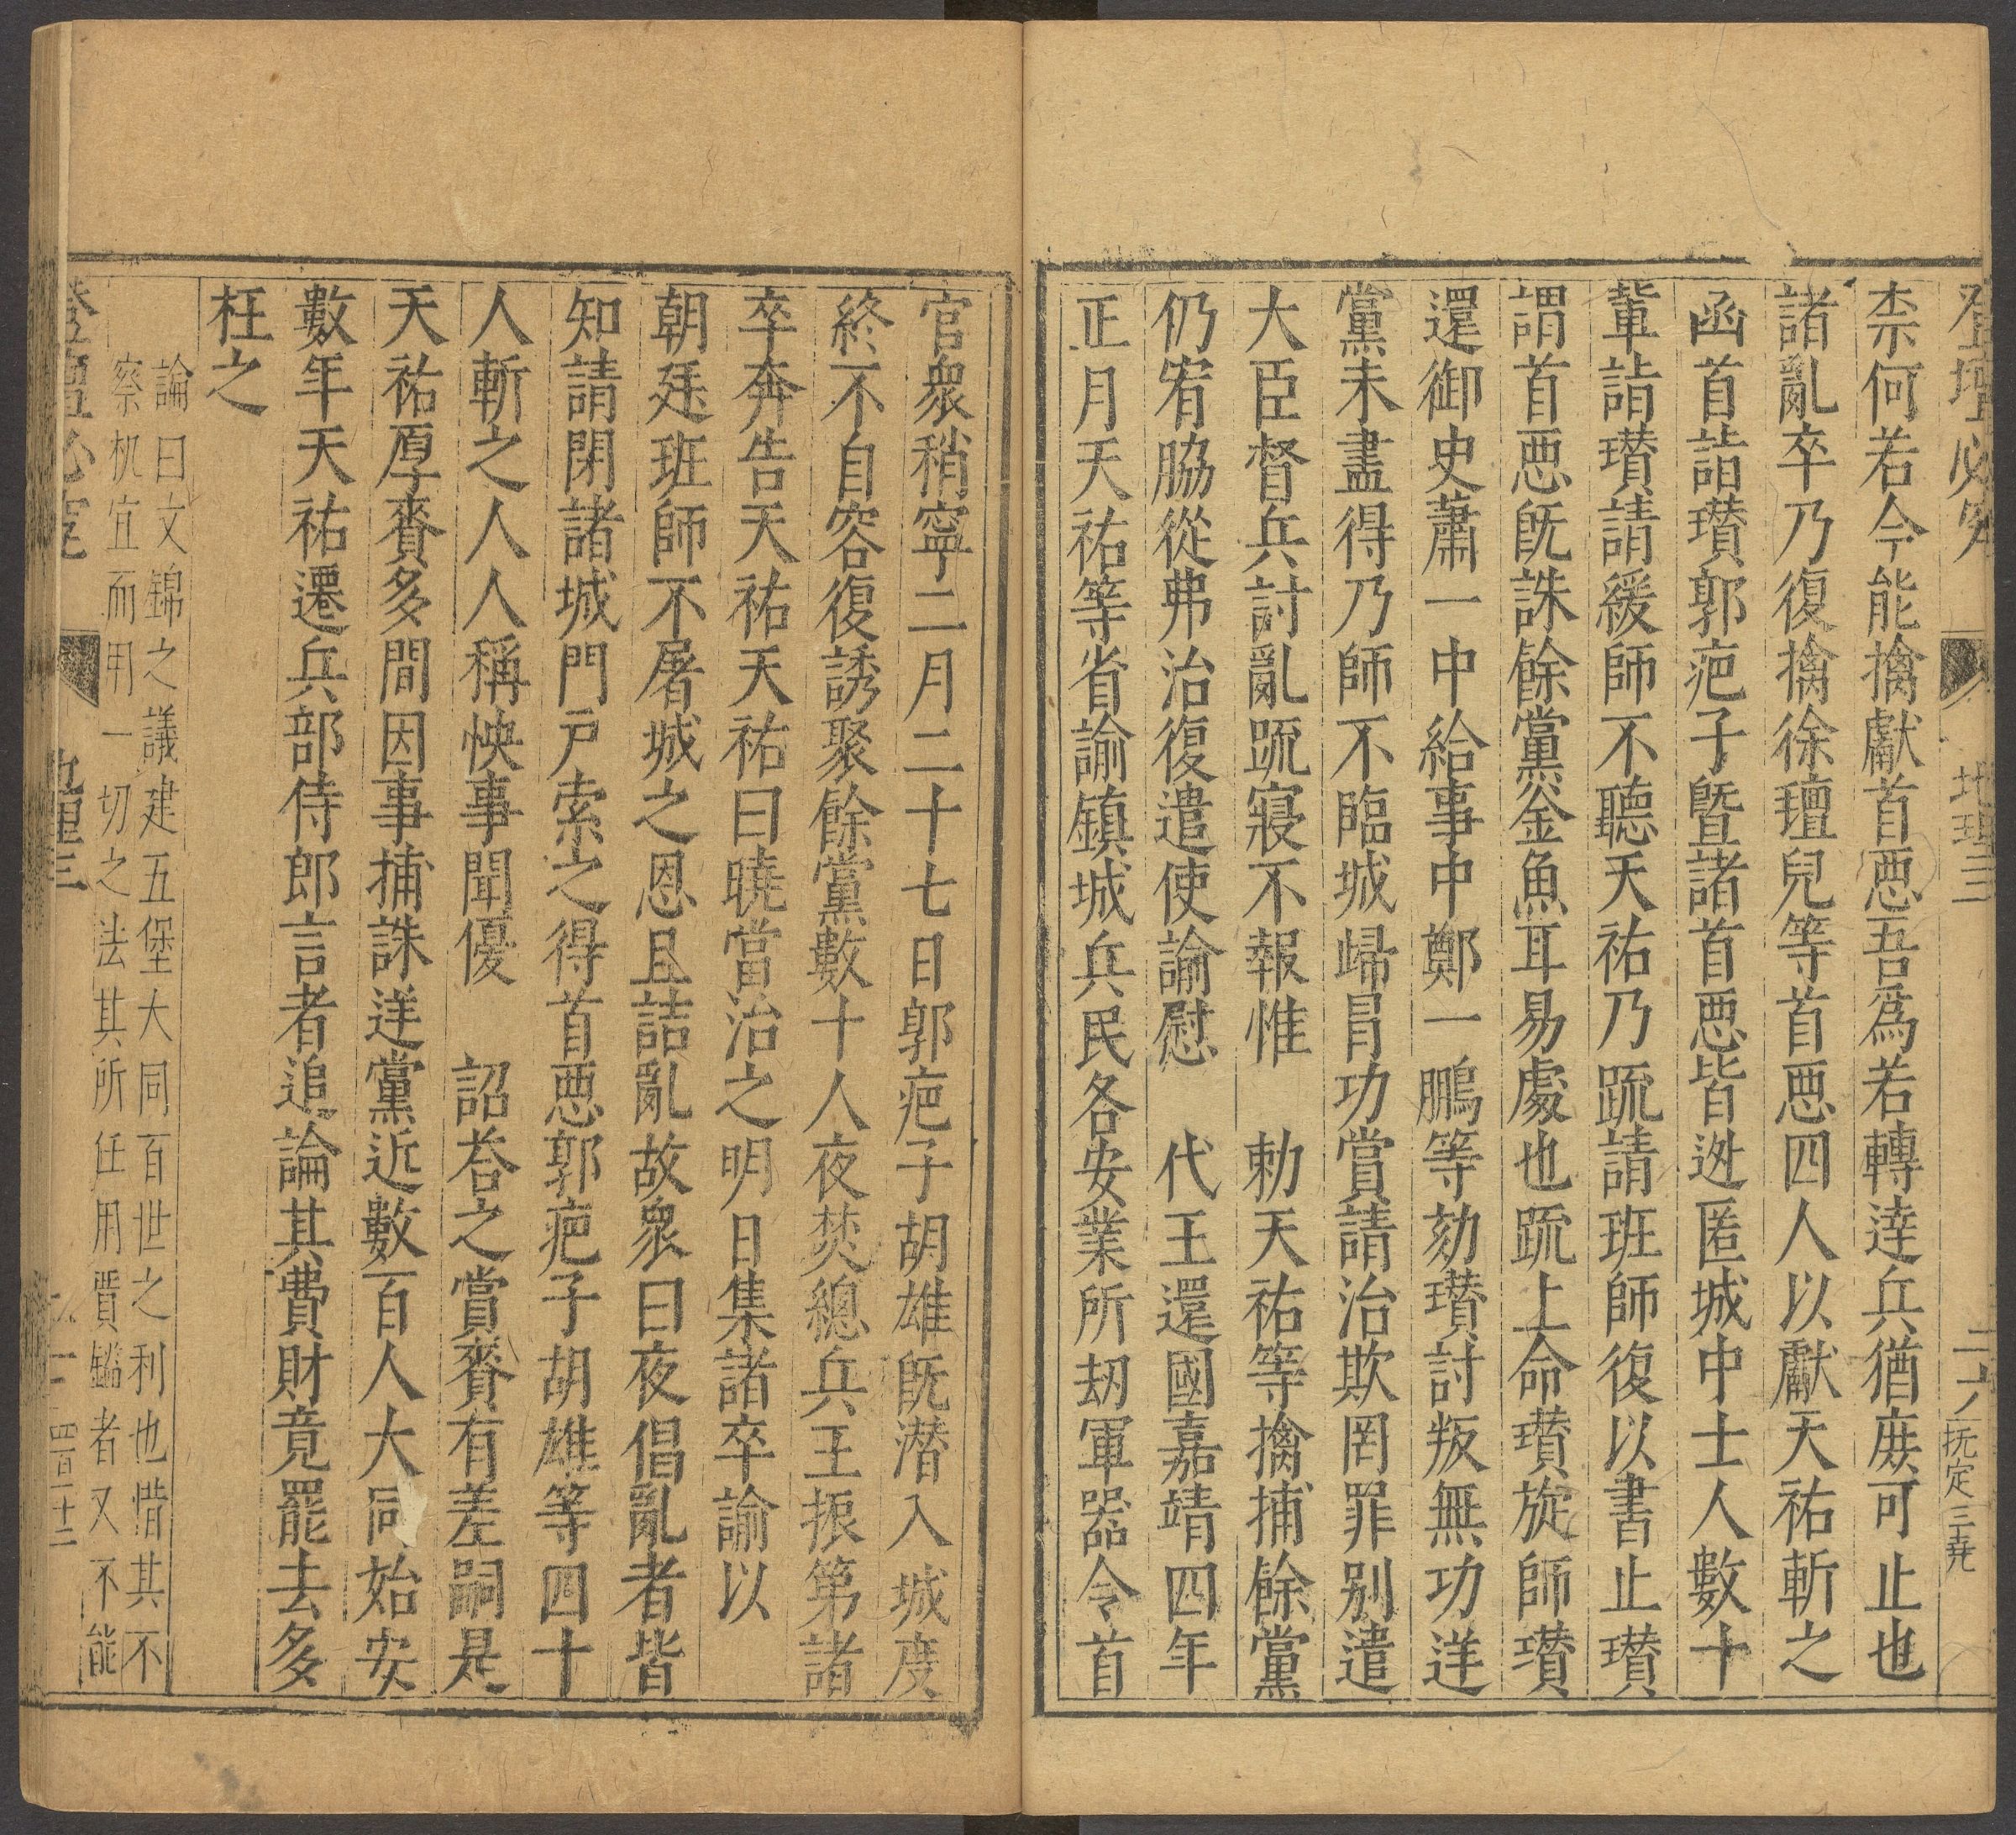 登壇必究 地理三 二六 抚定三尭
柰何若今能擒獻首惡吾爲若轉逹兵猶庻可止也
諸亂卒乃復擒徐㼅兒等首惡四人以獻天祐斬之
函首詣瓉郭疤子曁諸首惡皆迯匿城中士人數十
軰詣瓉請緩師不聽天祐乃䟽請班師復以書止瓉
謂首惡旣誅餘黨釡魚耳易處也䟽上命瓉旋師瓉
還御史蕭一中給事中鄭一鵬等劾瓉討叛無功逆
黨未盡得乃師不臨城歸冒功賞請治欺罔罪别遣
大臣督兵討亂䟽寢不報惟 勅天祐等擒捕餘黨
仍宥脇從弗治復遣使諭慰 代王還國嘉靖四年
正月天祐等省諭鎮城兵民各安業所刼軍噐令首
官衆稍寧二月二十七日郭疤子胡雄旣潛入城度
終不自容復誘聚餘黨數十人夜焚總兵王振第諸
卒奔告天祐天祐曰曉當治之明日集諸卒諭以
朝廷班師不屠城之恩且詰亂故衆曰夜倡亂者皆
知請閉諸城門戸索之得首惡郭疤子胡雄等四十
人斬之人人稱怏事聞優 詔荅之賞賚有差嗣是
天祐厚賚多間因事捕誅逆黨近數百人大同始安
數年天祐遷兵部侍郎言者追論其費財竟罷去多
枉之
論曰文錦之議建五堡大同百世之利也惜其不
察机宜而用一切之法其所任用賈鑑者又不能
登壇必究 地理三 四百二十二